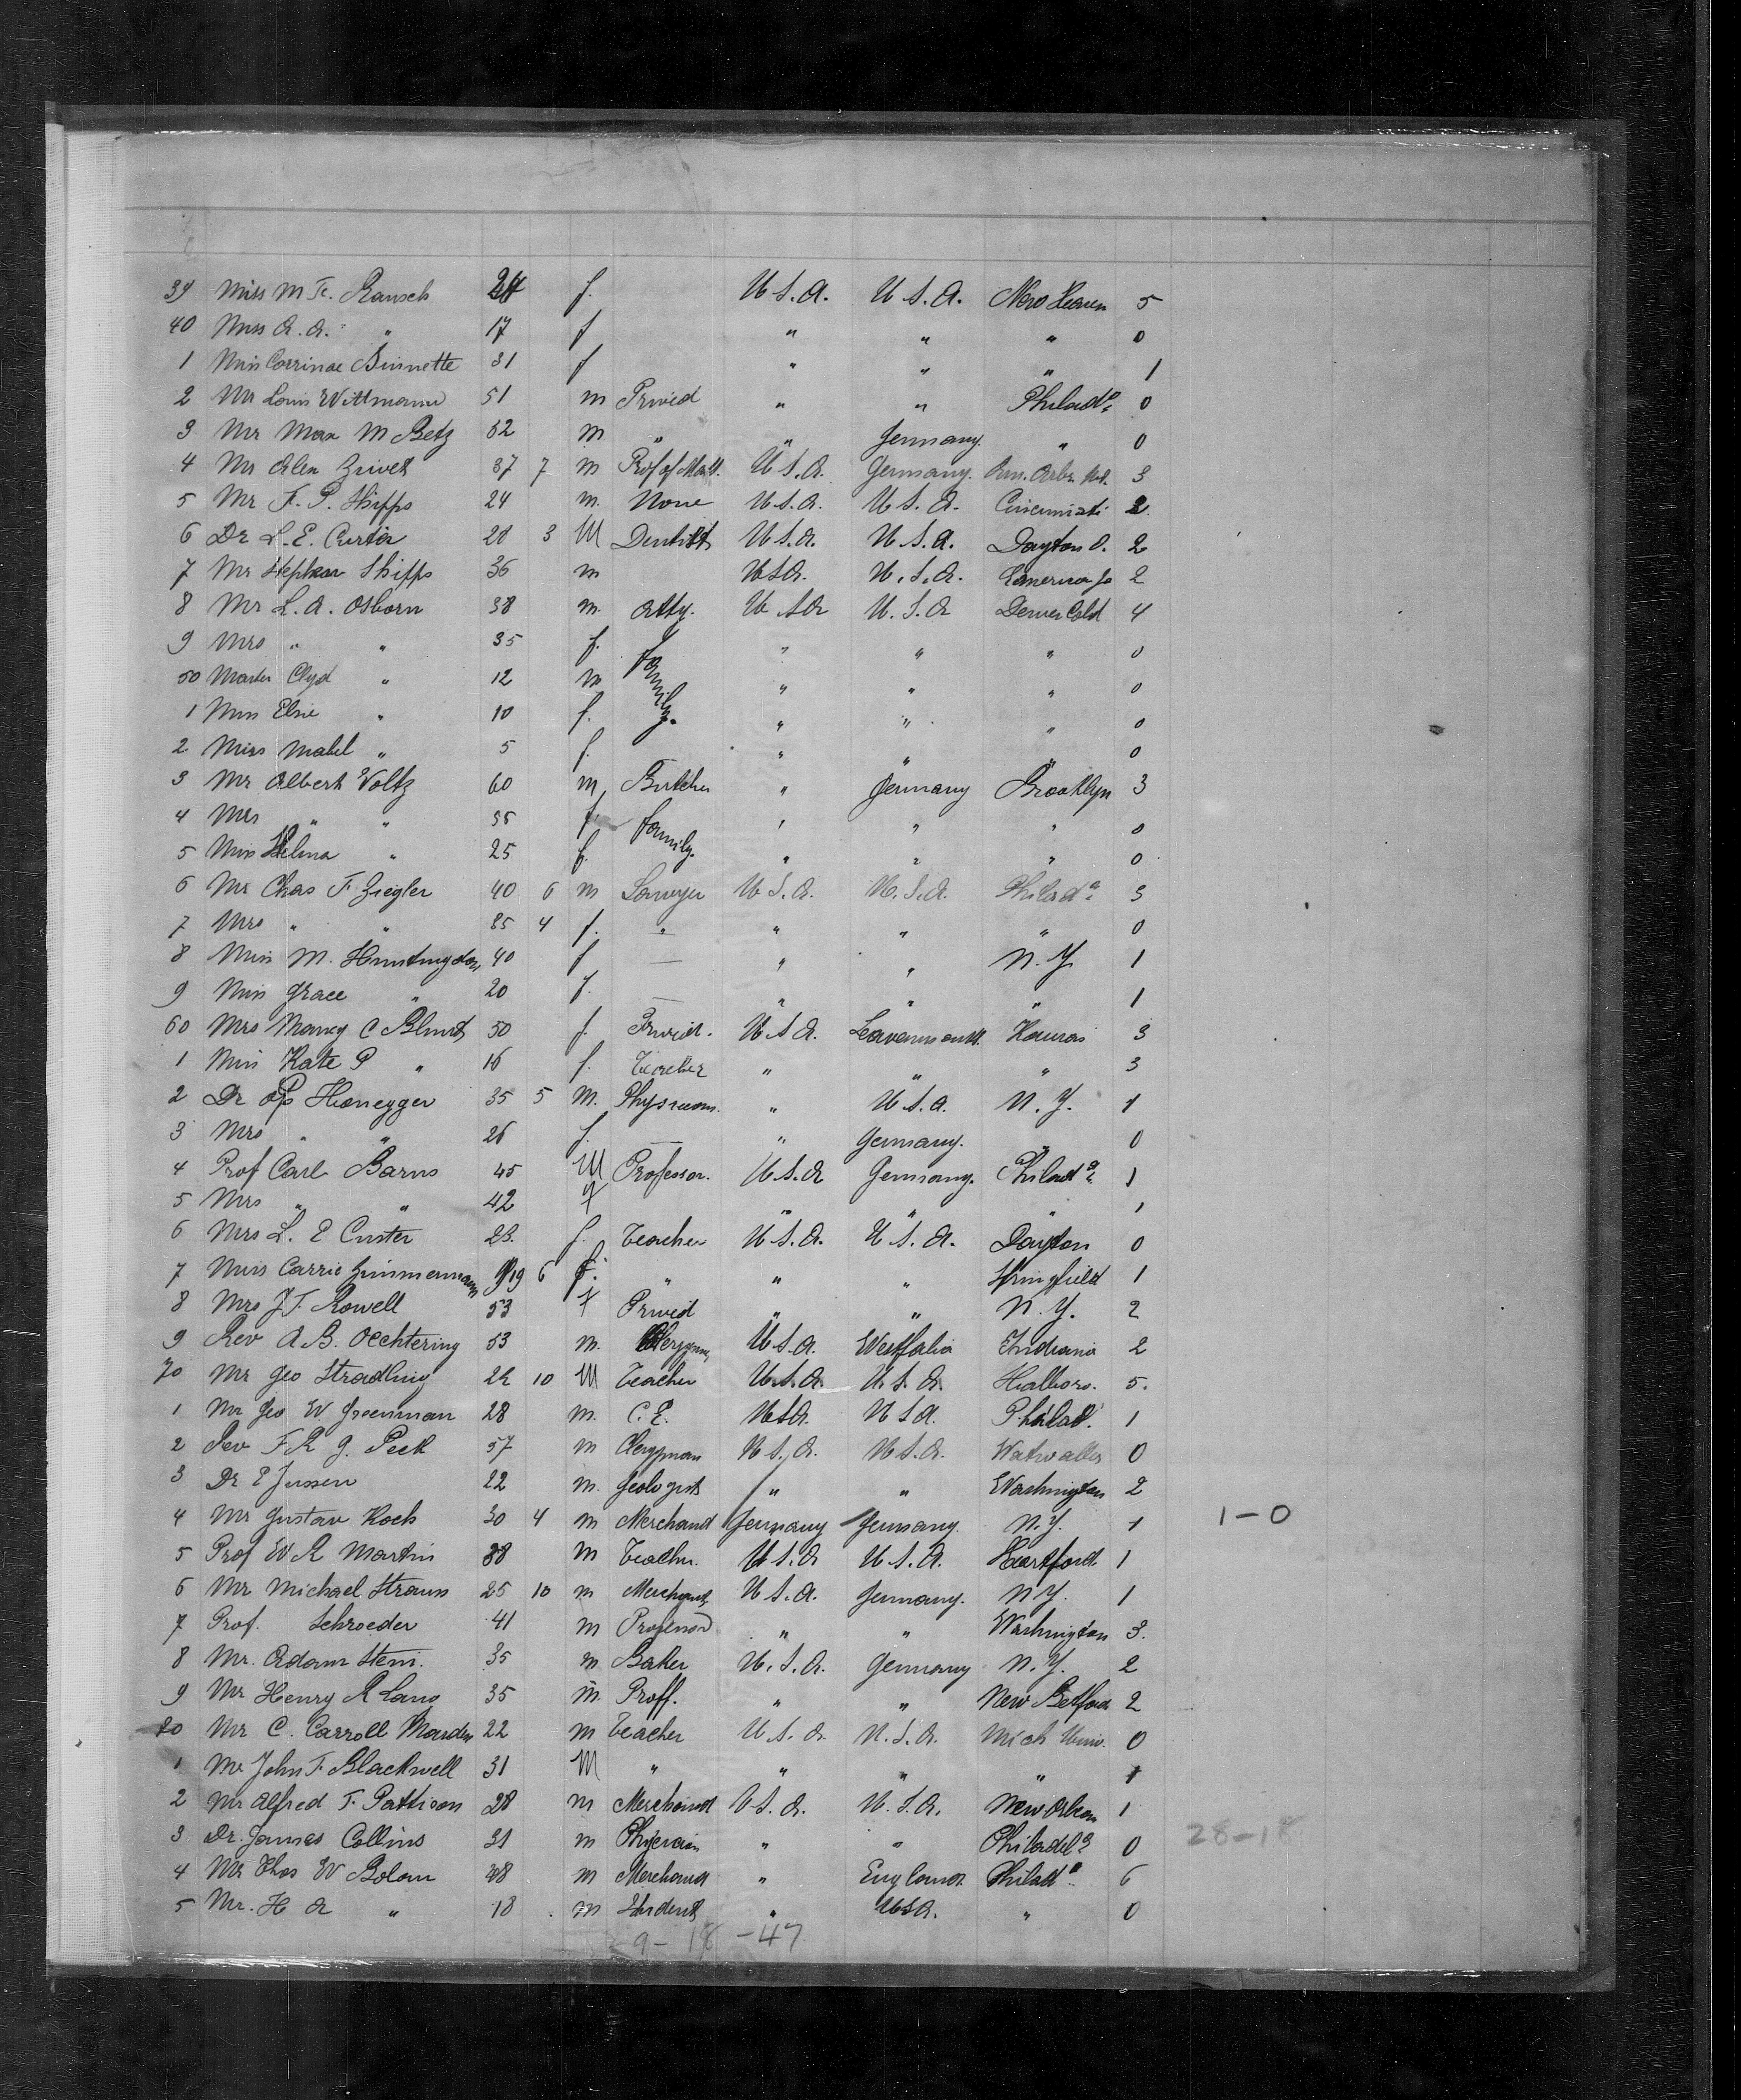 39 Miss M Fr. Rausch 24 f. U S. A. U S. A. New Haven 5
40 Miss A. A. " 17 f " " " 0
1 Miss Corrinae Binnette 31 f " " " 1
2 Mr Louis Wittmann 51 m Prived " " Philada. 0
3 Mr Max M Betz 52 m " " Germany. " 0
4 Mr Alex Ziwet 37 7 m Prof of Math. U S. A. Germany. Ann. Arbr. 3
5 Mr F. P. Shipps 24 m. None U S. A. U S. A. Cincinnati 2.
6 Dr L. E. Custer 28 3 M Dentist U S. A. U S. A. Dayton O. 2
7 Mr Stephen Shipps 36 m U S A. U. S. A. 2
8 Mr L. A. Osborn 38 m. Atty. U S A U. S. A Denver Cold 4
9 Mrs " " 35 f. family. " " " 0
50 Master Clyd " 12 m " " " 0
1 Miss Elsie " 10 f. " " " 0
2 Miss Mabel " 5 f. " " " 0
3 Mr Albert Voltz 60 m, Butcher " Germany Brooklyn 3
4 Mrs " " 55 f. family. " " " 0
5 Miss Helma " 25 f. " " " 0
6 Mr Chas F. Ziegler 40 6 m Lawyer U S. A. U. S. A. Philada. 3
7 Mrs " " 35 4 f. " " " " 0
8 Miss M. Huntingdon 40 f — " " N. Y. 1
9 Miss Grace " 20 f. — " " " 1
60 Mrs Maney C Blunt 50 f. Privid. U S A. Leavensworth. Kansas 3
1 Miss Kate P " 16 f. Teacher " " " 3
2 Dr Honegger 35 5 M. Physician. " U S. A. N. Y. 1
3 Mrs " " 26 f. — " Germany. " 0
4 Prof Carl Barus 45 M Professor. U S. A Germany. Philada. 1
5 Mrs " " 42 f " " " 1
6 Mrs L. E Custer 23. f. Teacher U S. A. U S. A. Dayton 0
7 Miss Carrie Zimmermann 19 6 f. " " " Springfield 1
8 Mrs J. T. Rowell 53 f Privid " " N. Y. 2
9 Rev A. B. Oechtering 53 m. Clergyman U S. A. Westfalia Indiana 2
70 Mr Geo Stradling 22 10 M Teacher U. S. A. U. S. A. Halboro. 5.
1 Mr Geo W Greenman 28 m. C. E. U S A. U S A. Philad. 1
2 Rev F R G. Peck 57 m Clergyman U S. A. U S. A. 0
3 Dr E Jussen 22 m. Geologist " " Washington 2
4 Mr Gustav Koch 30 4 m Merchand Germany Germany. N. Y. 1 1-0
5 Prof W R Martin 38 m Teacher. U S. A U S. A. Hartford. 1
6 Mr Michael Strauss 25 10 m Merchant U S. A. Germany. N Y. 1
7 Prof. Schroeder 41 m Professor " " Washington 3.
8 Mr. Adam Stein. 35 m Baker U. S. A. Germany N. Y. 2
9 Mr Henry R Lang 35 m. Proff. " " New Betford 2
80 Mr C. Carroll Marden 22 m Teacher U S. A. U. S. A. Mich Univ. 0
1 Mr John F. Blackwell 31 M " " " " 1
2 Mr Alfred T. Pattison 28 m Merchand U S. A. U. S. A. New Orlean 1
3 Dr. James Collins 31 m Physician " " Philadela 0 28-18
4 Mr Thos W Bolam 48 m Merchand " England. Philada. 6
5 Mr. H A " 18 . m Student " U S A. " 0
9- 18 -47